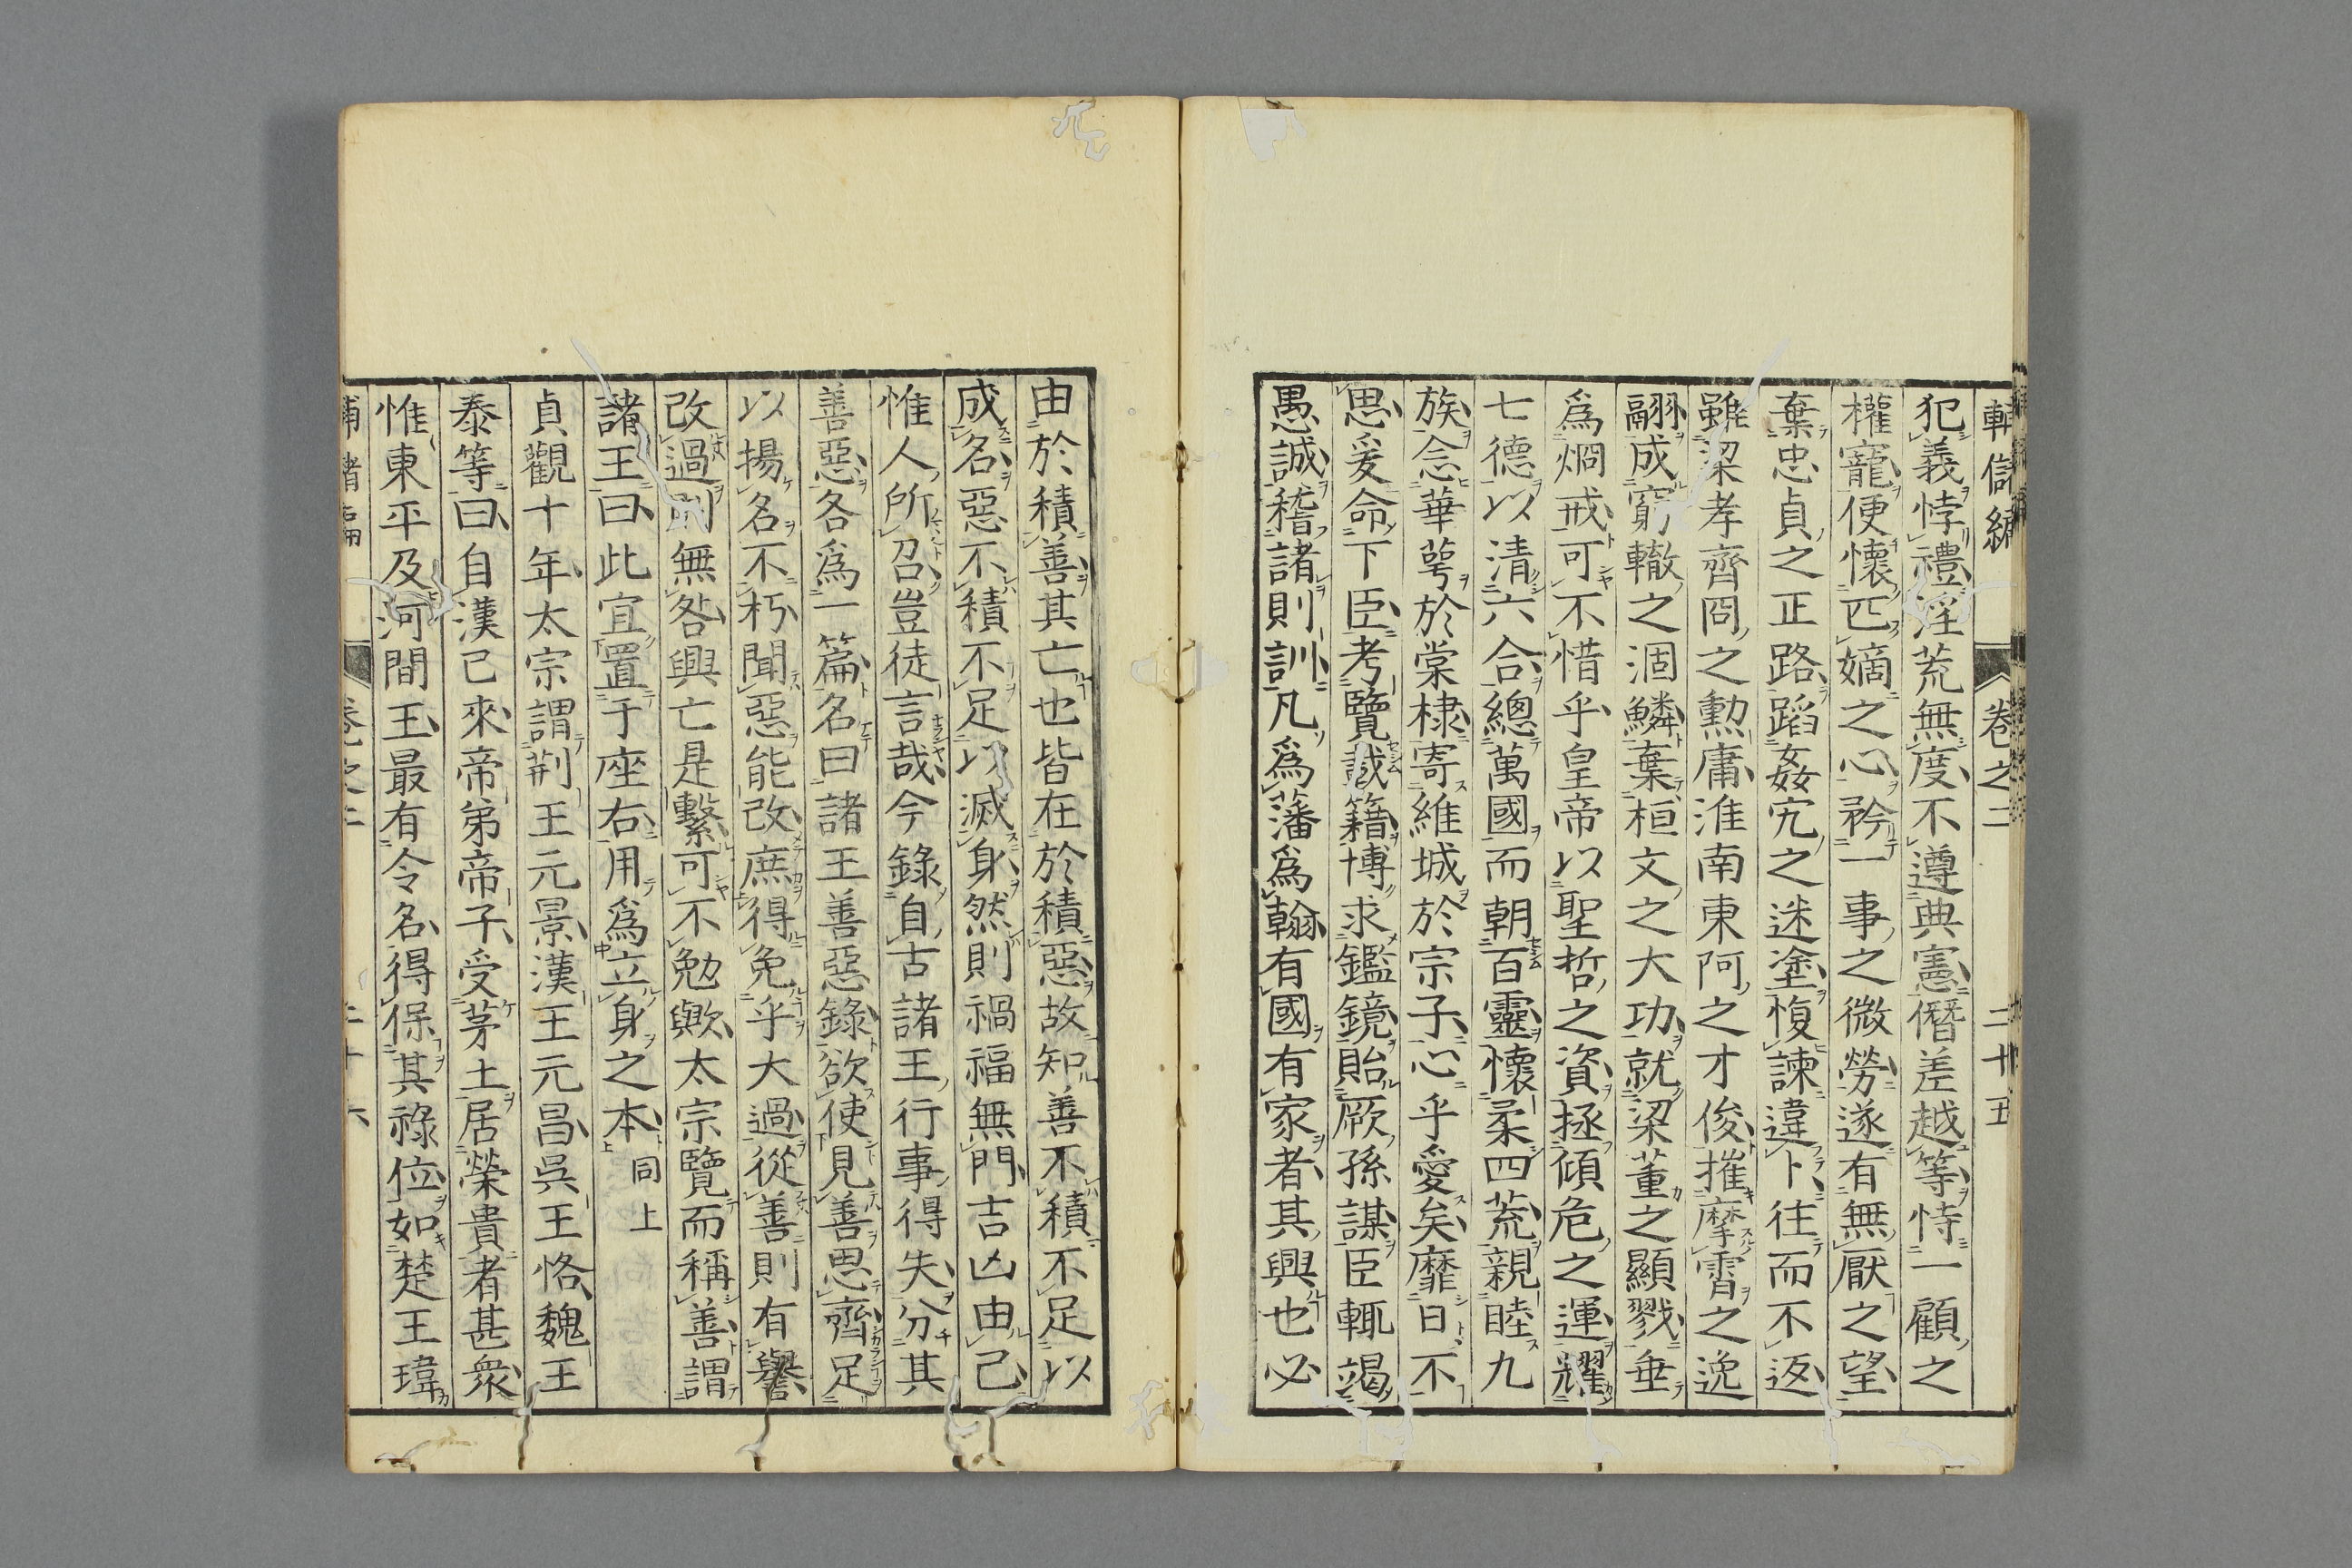 輔儲編 卷之二 二十五
犯義悖禮淫荒無度不遵典憲僭差越等恃一顧之
權寵便懷匹嫡之心矜一事之微勞遂有無厭之望
棄忠貞之正路蹈姦宄之迷塗愎諫違卜往而不返
雖梁孝齊冏之勲庸淮南東阿之才俊摧摩霄之逸
翮成窮轍之涸鱗棄桓文之大功就梁董之顯戮垂
爲烱戒可不惜乎皇帝以聖哲之資拯傾危之運耀
七德以清六合總萬國而朝百靈懷柔四荒親睦九
族念華萼於棠棣寄維城於宗子心乎愛矣靡日不
思爰命下臣考覽載籍博求鑑鏡貽厥孫謀臣輒竭
愚誠稽諸則訓凡爲藩爲翰有國有家者其興也必
由於積善其亡也皆在於積惡故知善不積不足以
成名惡不積不足以滅身然則禍福無門吉凶由己
惟人所召豈徒言哉今錄自古諸王行事得失分其
善惡各爲一篇名曰諸王善惡錄欲使見善思齊足
以揚名不朽聞惡能改庶得免乎大過從善則有譽
改過則無咎興亡是繫可不勉歟太宗覽而稱善謂
諸王曰此宜置于座右用爲立身之本同上
貞觀十年太宗謂荆王元景漢王元昌吳王恪魏王
泰等曰自漢已來帝弟帝子受茅土居榮貴者甚衆
惟東平及河間王最有令名得保其祿位如楚王瑋
輔諸編 卷之二 二十六